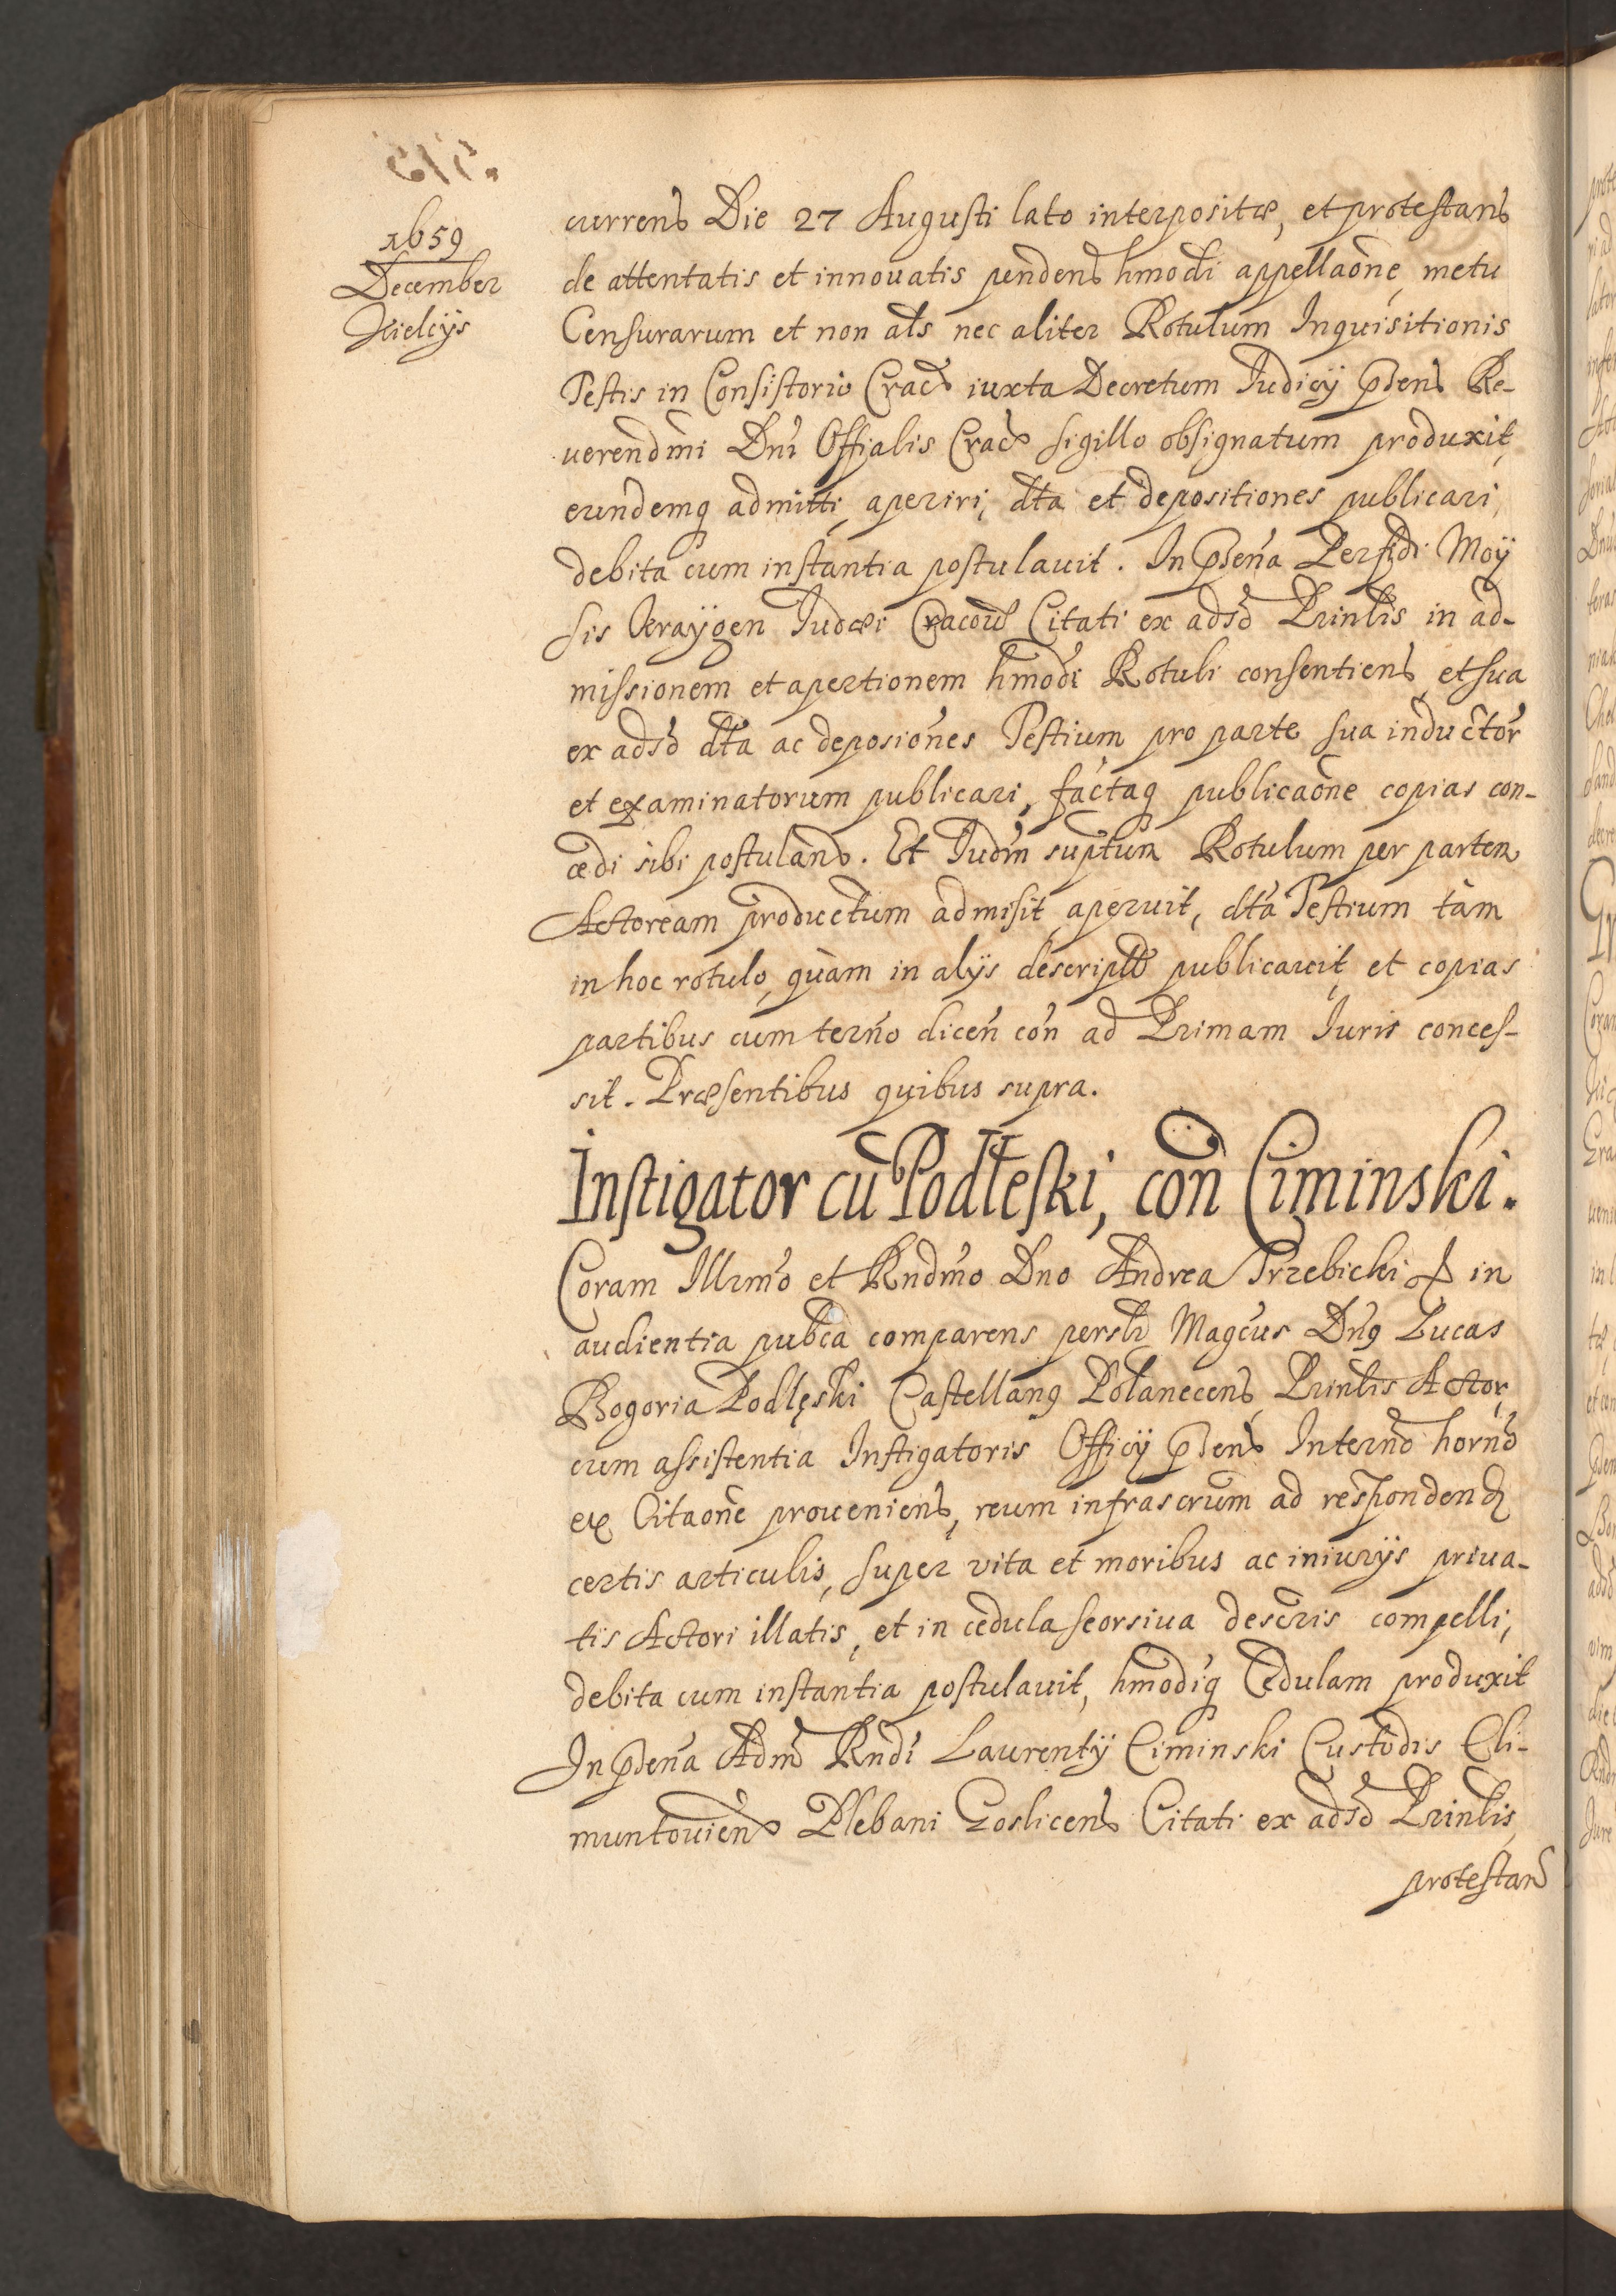 1659
December
Kielcijs
currens Die 27 Augusti lato interpositæ, et protestans
de attentatis et innouatis pendens hmodi appellaōne, metu
Censurarum et non als nec aliter Rotulum Inquisitionis
Testis in Consistorio Crac iuxta Decretum Iudicij pdens Re-
uerendmi Dni Offialis Crac sigillo obsignatum produxit,
eundemq admitti, aperiri, dta et depositiones publicari,
debita cum instantia postulauit. In pdena Perfidi Moÿ
sis Kraÿgen Iudæi Cracou Citati ex adsd Prinlis in ad-
missionem et apertionem hmodi Rotuli consentiens, et sua
ex adsd dta ac deposiones Testium pro parte sua inductor
et examinatorum publicari, factaq publicaōne copias con-
cedi sibi postulans. Et Iudm suptum Rotulum per partem
Actoream productum admisit, aperuit, dta Testium tàm
in hoc rotulo, quàm in alijs descript publicauit, et copias
partibus cum termo dicen con ad Primam Iuris conces-
sit. Præsentibus quibus supra.
Instigator cū Podłeski, con Ciminski.
Coram Illrmo et Rndmo Dno Andrea Trzebicki in
audientia pubca comparens persl Magcus Dnq Lucas
Bogoria Podlęski Castellanq Połanecens Prinlis Actor,
cum assistentia Instigatoris Officij pdens In termo horno
ex Citaōne proueniens, reum infrascrum ad respondend
certis articulis, super vita et moribus ac iniurijs priua-
tis Actori illatis, et in cedula seorsiua descris compelli,
debita cum instantia postulauit, hmodiq Cedulam produxit
In pdena Adm Rndi Laurentij Ciminski Custodis Cli-
muntouien Plebani Goslicens Citati ex adsd Prinlis,
protestan